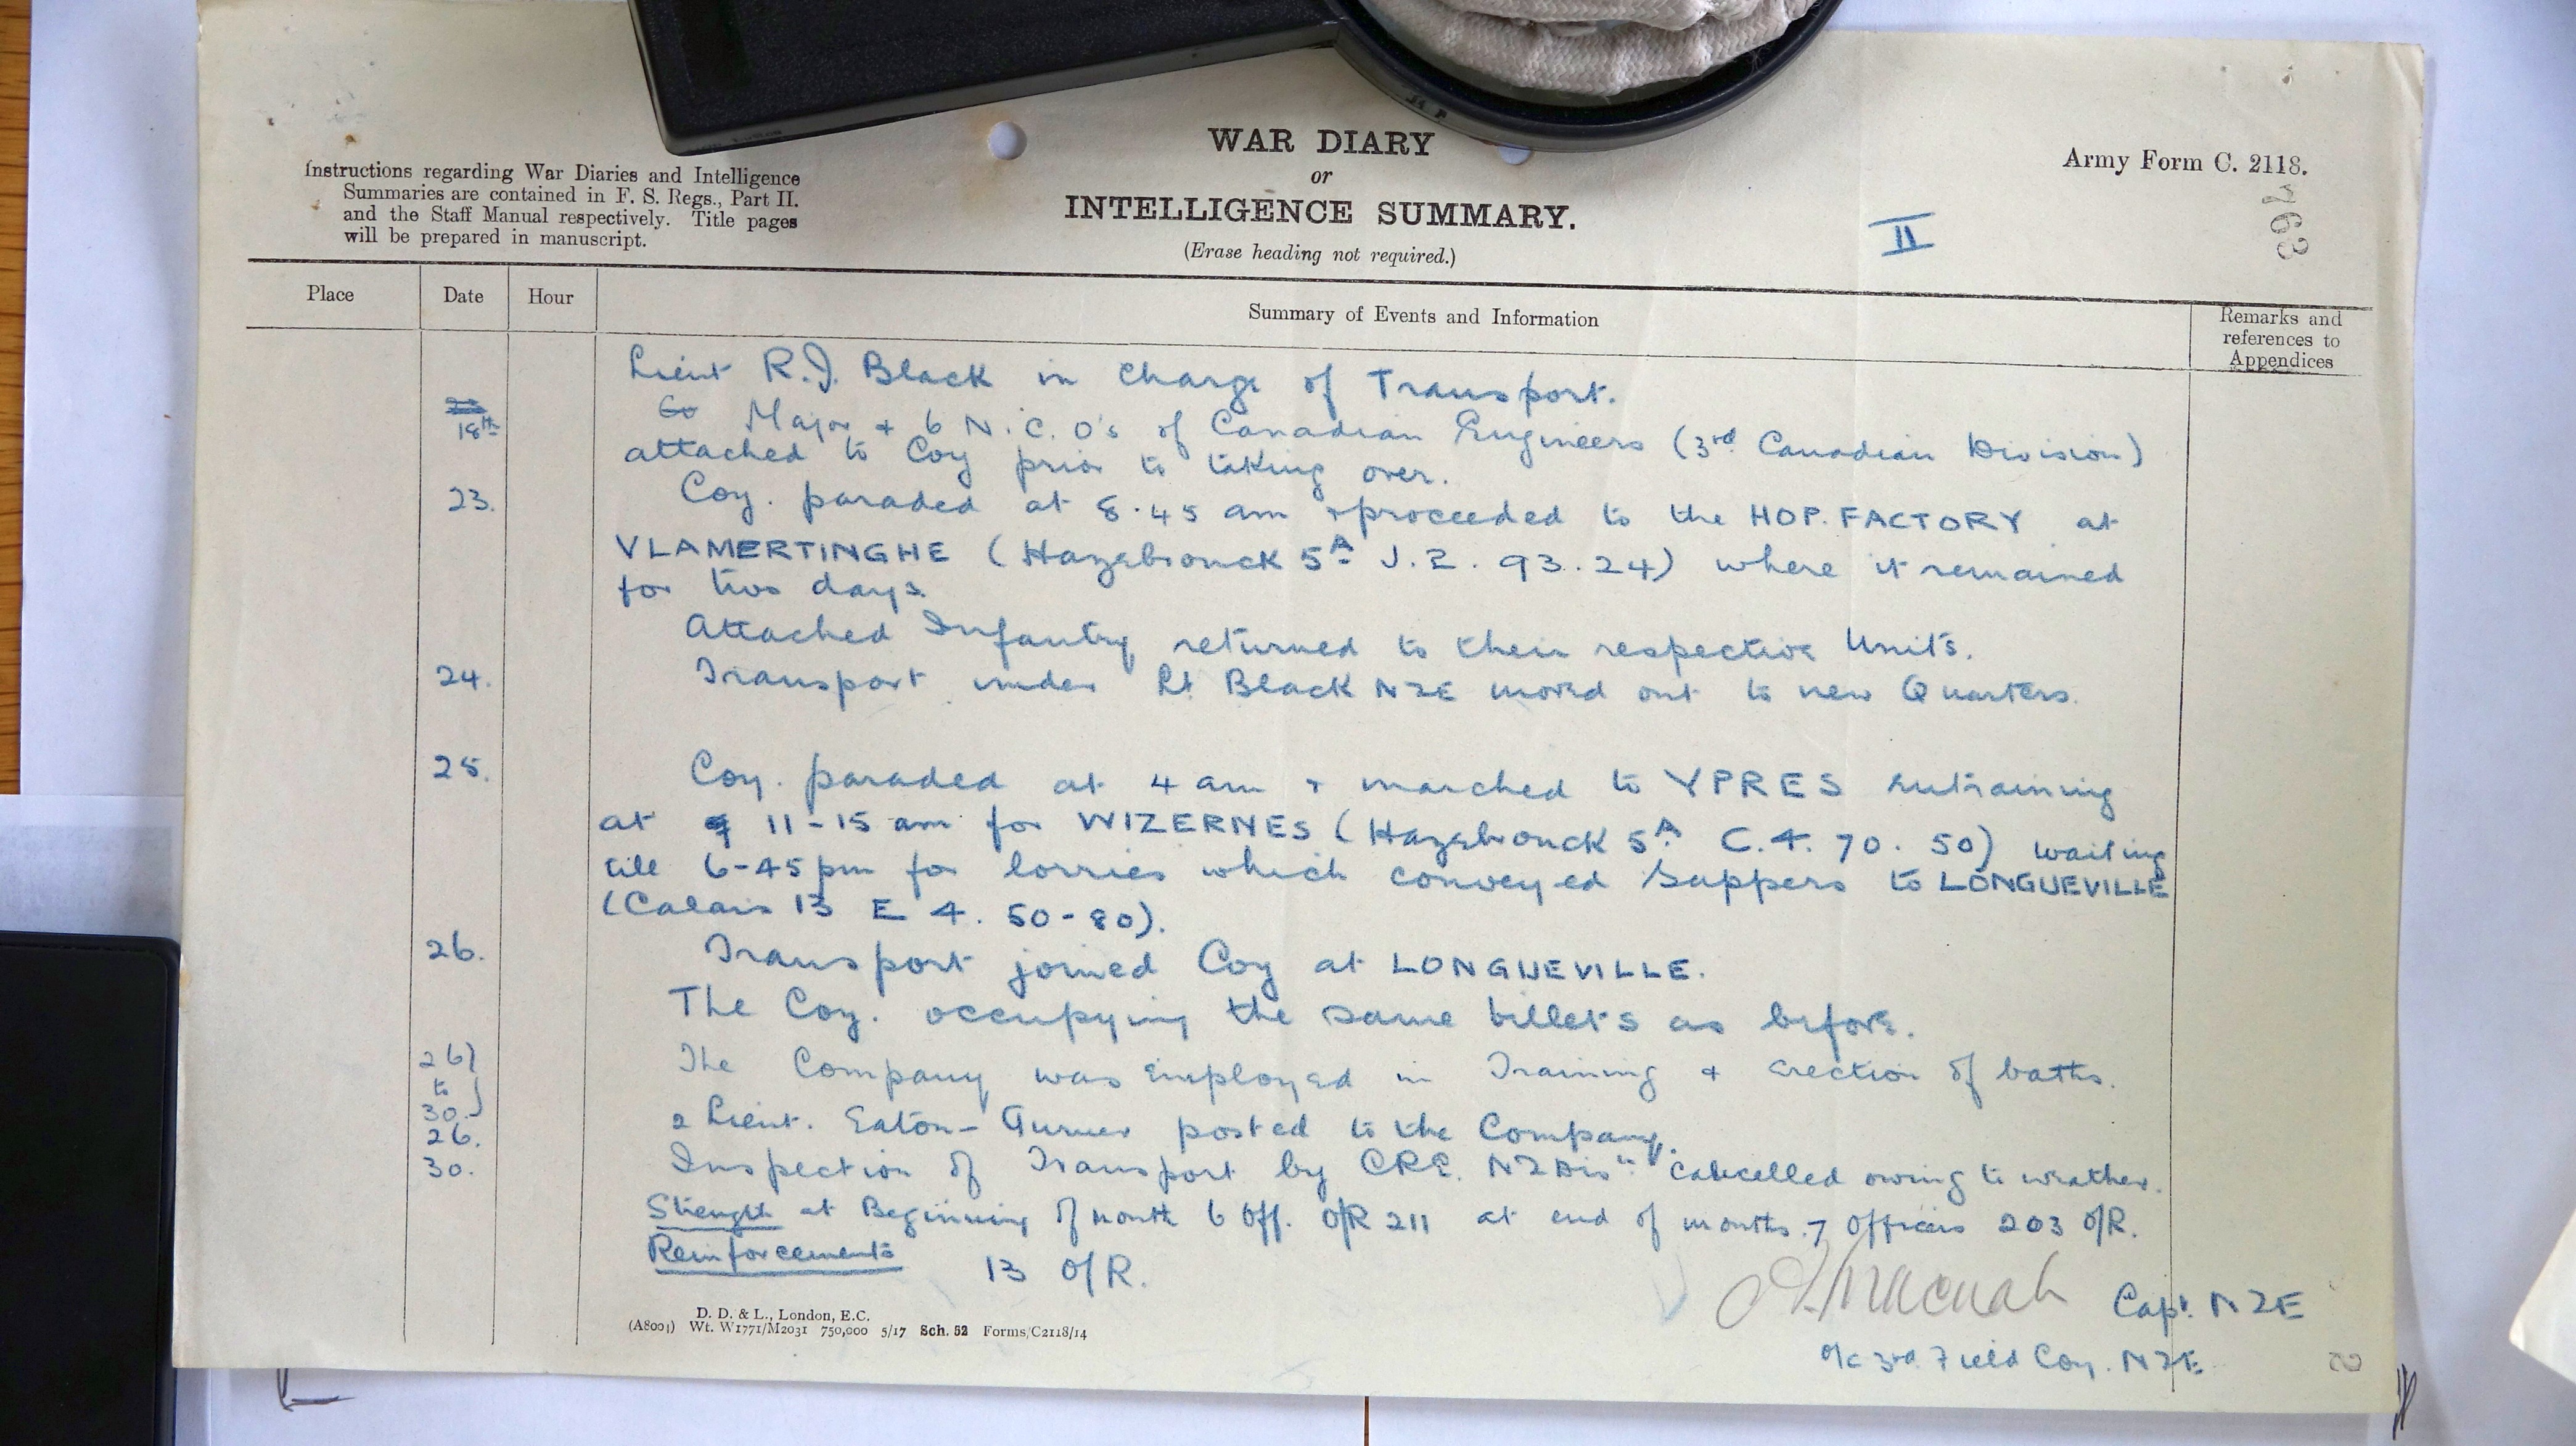 WAR DIARY
or
INTELLIGENCE SUMMARY.
(Erase heading not required.)
Army Form C. 2118.
763
II
Instructions regarding War Diaries and Intelligence
Summaries are contained in F. S. Regs., Part II.
and the Staff Manual respectively. Title pages
will be prepared in manuscript.
Place Date Hour Summary of Events and Information Remarks and references to Appendices
Lieut R.J. Black in charge of Transport.
18th Major + 6 N.C.O's of Canadian Engineers (3rd Canadian Division)
attached to Coy prior to taking over.
23. Coy. paraded at 8.45 am + proceeded to the HOP. FACTORY at
VLAMERTINGHE (Hazebrouck 5A J.2. 93.24) where it remained
for two days.
Attached Infantry returned to their respective Units.
24. Transport under Lt Black NZE moved out to new Quarters.
25. Coy. paraded at 4 am + marched to YPRES entraining
at 11-15 am for WIZERNES (Hazebrouck 5A C.4. 70. 50) waiting
till 6-45 pm for lorries which conveyed Sappers to LONGUEVILLE
(Calais 13 E 4. 50-80).
26. Transport joined Coy at LONGUEVILLE.
The Coy. occupying the same billets as before.
26) to 30.) The Company was employed in Training + erection of baths.
26. 2 Lieut. Eaton-Turner posted to the Company.
30. Inspection of Transport by CRE. NZ Divn. cancelled owing to weather.
Strength at Beginning of month 6 Off. O/R 211 at end of months 7 Officers 203 O/R.
Reinforcements 13 O/R.
Capt. NZE
O/C 3rd Field Coy. NZE
2
D. D. & L., London, E.C.
(A8001) Wt. W1771/M2031 750,000 5/17 Sch. 52 Forms/C2118/14